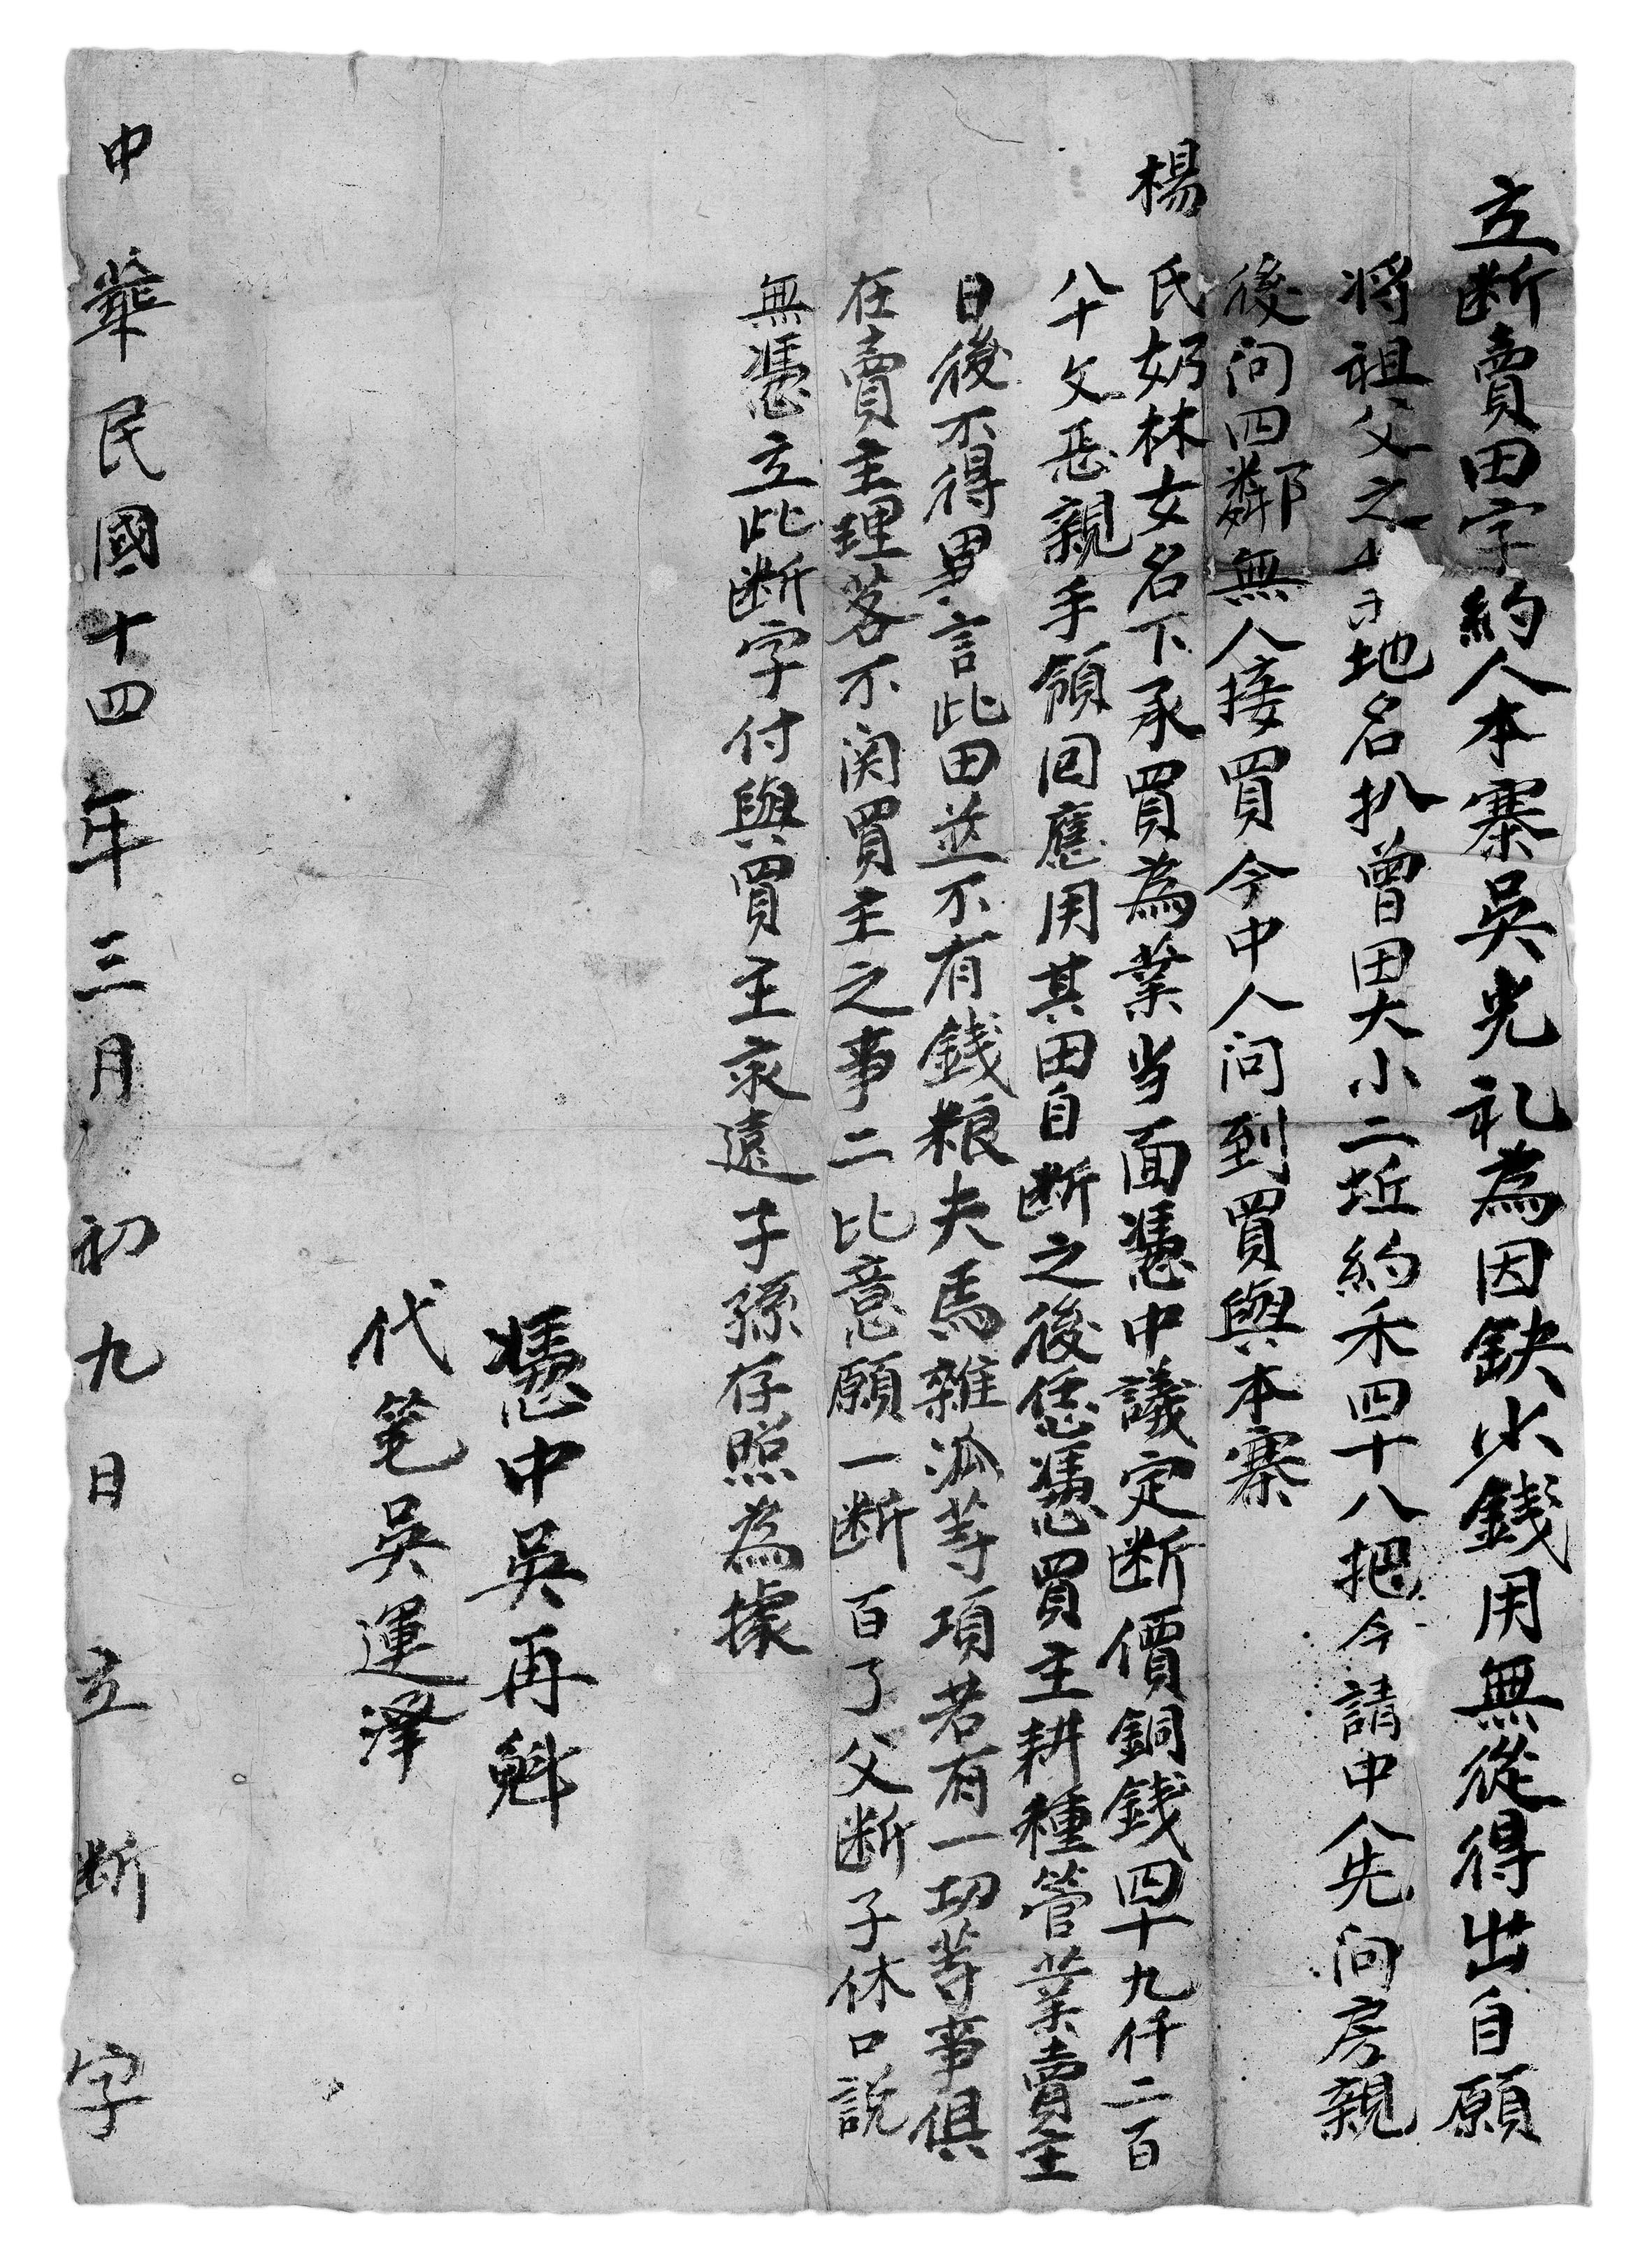 立断賣田字約人本寨吳光礼為因缺少錢用無從得出自願
將祖父之地名扒曾田大小二坵約禾四十八把今請中人先问房親
後问四鄰無人接買今中人问到買與本寨
楊氏奶林女名下承買為業当面憑中議定断價銅錢四十九仟二百
八十文恁親手領回應用其田自断之後恁憑買主耕種管業賣主
日後不得異言此田並不有錢粮夫馬雜派等項若有一切等事俱
在賣主理落不関買主之事二比意願一断百了父断子休口説
無憑立此断字付與買主永遠子孫存照為據
憑中吳再魁
代筆吳運澤
中華民國十四年三月初九日立断字